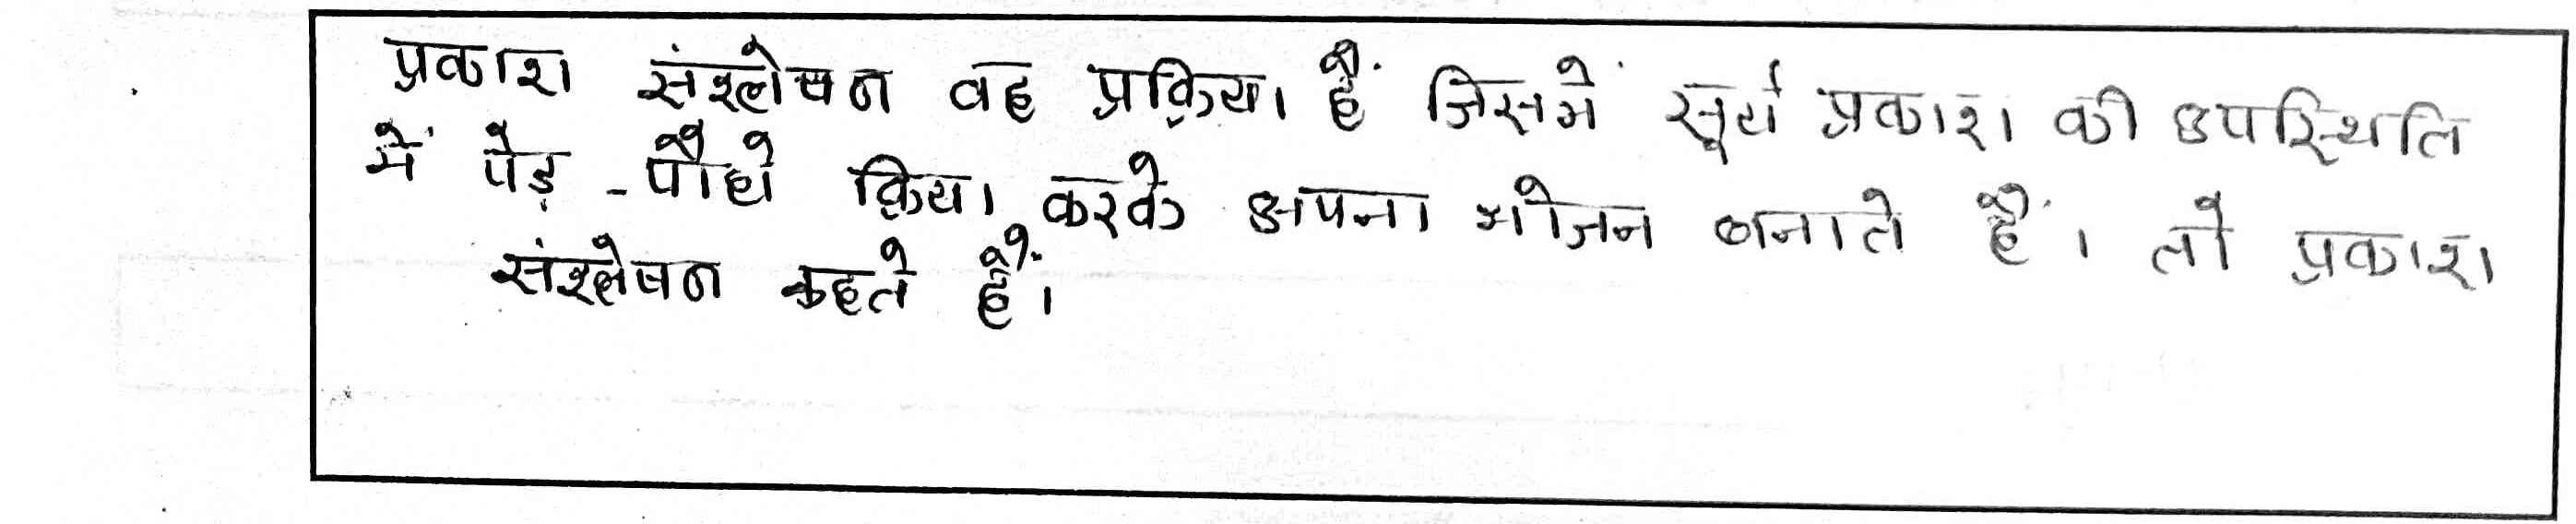 प्रकाश संश्लेषण वह प्रक्रिया हैं जिसमें सूर्य प्रकाश की उपस्थिति
में पेड़ - पौधे क्रिया करके अपना भोजन बनाते हैं। तो प्रकाश
संश्लेषण कहते हैं।